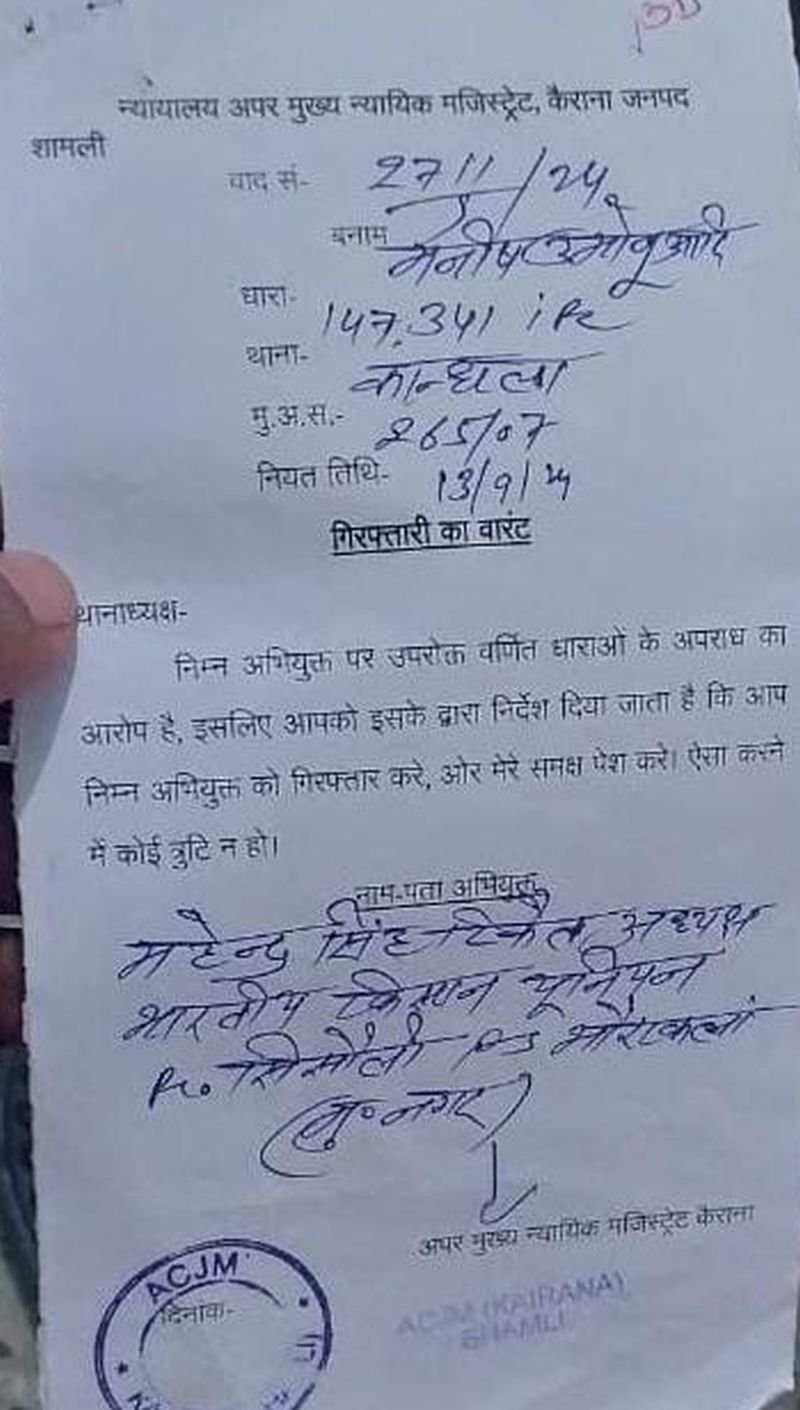 न्यायालय अपर मुख्य न्यायिक मजिस्ट्रेट, कैराना जनपद
शामली
वाद सं- 2711/24
बनाम मनीष उ मोनू आदि
धारा- 147, 341 iPc
थाना- कान्धला
मु.अ.स.- 265/07
नियत तिथि- 13/9/24
गिरफ्तारी का वारंट
थानाध्यक्ष-
निम्न अभियुक्त पर उपरोक्त वर्णित धाराओं के अपराध का
आरोप है, इसलिए आपको इसके द्वारा निर्देश दिया जाता है कि आप
निम्न अभियुक्त को गिरफ्तार करे, ओर मेरे समक्ष पेश करे। ऐसा करने
में कोई त्रुटि न हो।
नाम-पता अभियुक्त
महेन्द्र सिंह टिकैत अध्यक्ष
भारतीय किसान यूनियन
सिसौली PS भौराकलां
(मु० नगर)
अपर मुख्य न्यायिक मजिस्ट्रेट कैराना
ACJM
दिनांक-
ACJM (KAIRANA)
SHAMLI